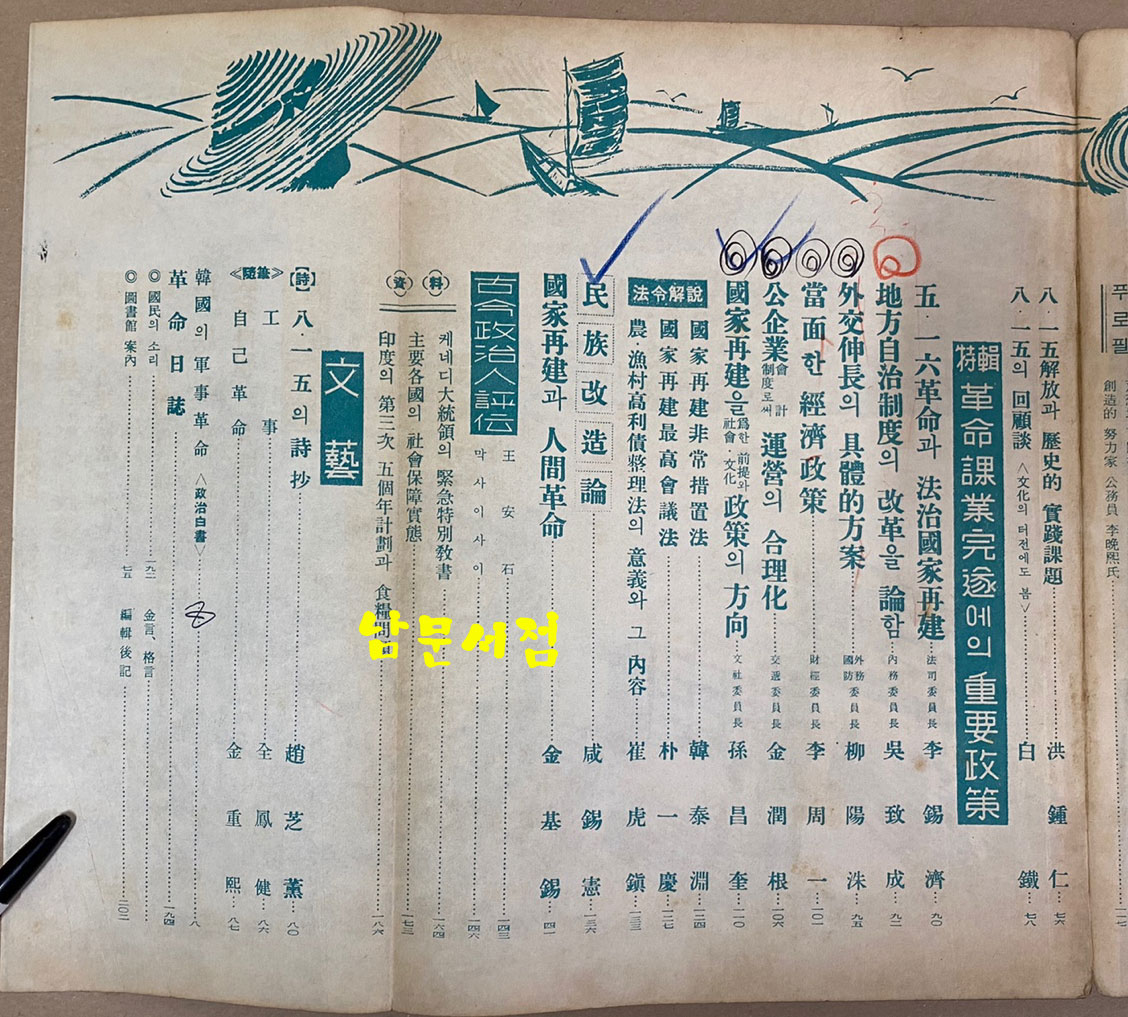 푸로필
創造的 努力家 公務員 李晩熙氏
八·一五解放과 歷史的 實踐課題 洪鍾仁 七六
八·一五의 回顧談 〈文化의 터전에도 봄〉 白鐵 七八
特輯 革命課業完遂에의 重要政策
五·一六革命과 法治國家再建 法司委員長 李錫濟 九〇
地方自治制度의 改革을 論함 內務委員長 吳致成 九二
外交伸長의 具體的方案 外務國防委員長 柳陽洙 九五
當面한 經濟政策 財經委員長 李周一 一〇一
公企業會計制度로써 運營의 合理化 交通委員長 金潤根 一〇六
國家再建을 爲한 前提와 社會·文化政策의 方向 文社委員長 孫昌奎 一一〇
法令解說
國家再建非常措置法 韓泰淵 一二四
國家再建最高會議法 朴一慶 一二七
農·漁村高利債整理法의 意義와 그 內容 崔虎鎭 一三三
民族改造論 咸錫憲 一三六
國家再建과 人間革命 金基錫 一四一
古今政治人評伝
王安石 一四三
막사이사이 一四六
資料
케네디大統領의 緊急特別敎書 一六四
主要各國의 社會保障實態 一七三
印度의 第三次 五個年計劃과 食糧問題 一八六
文藝
【詩】 八·一五의 詩抄 趙芝薰 八〇
《隨筆》 工事 全鳳健 八六
自己革命 金重熙 八七
韓國의 軍事革命 〈政治白書〉 八
革命日誌 一九四
◎ 國民의 소리 一九二
金言、格言
◎ 圖書館 案內 七五
編輯後記 二〇二
남문서점